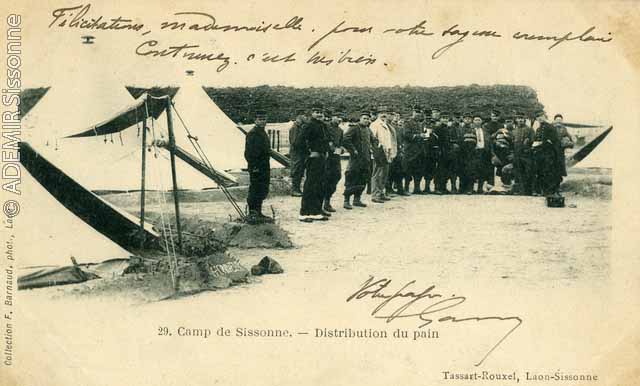 Félicitations, mademoiselle, pour votre façon exemplaire
Continuez, c'est très bien.
© ADEMIR.Sissonne
Collection F. Barnaud, phot., Laon
Votre papa
29. Camp de Sissonne. — Distribution du pain
Tassart-Rouxel, Laon-Sissonne